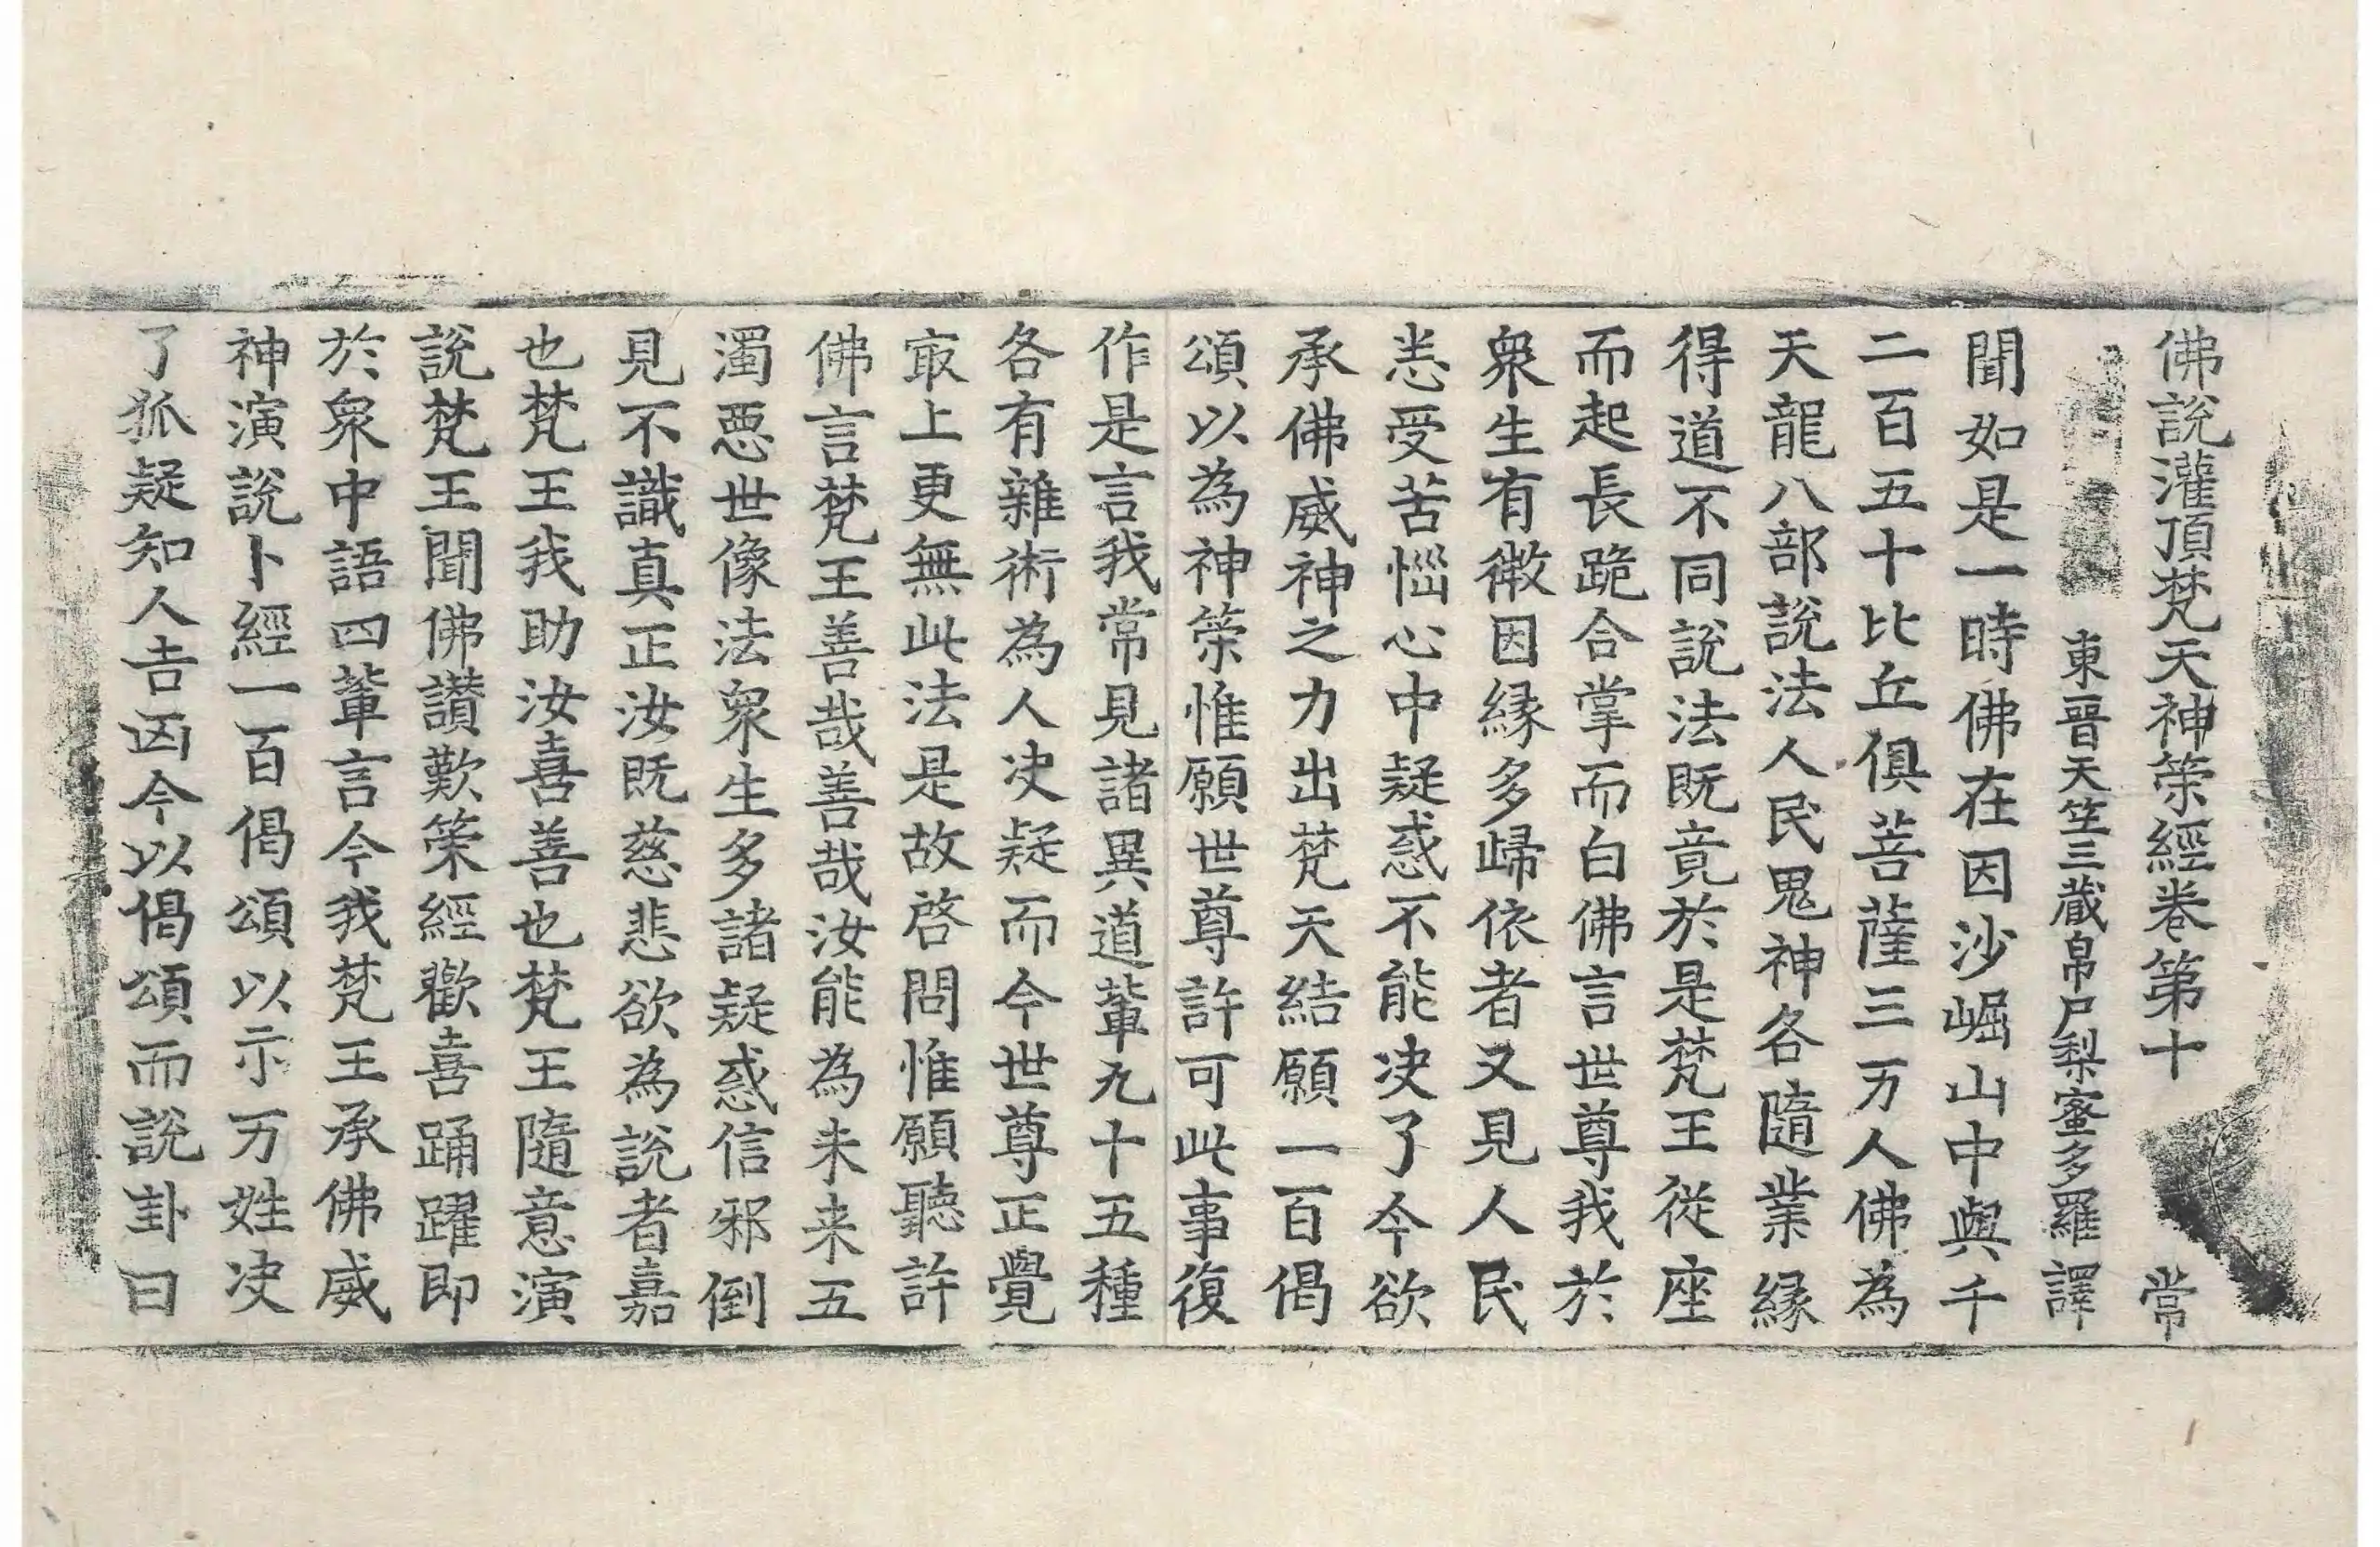 佛說灌頂梵天神筞經卷第十 常
東晉天竺三藏帛尸梨蜜多羅譯
聞如是一時佛在因沙崛山中與千
二百五十比丘俱菩薩三万人佛為
天龍八部說法人民鬼神各隨業緣
得道不同說法既竟於是梵王從座
而起長跪合掌而白佛言世尊我於
衆生有微因緣多歸依者又見人民
恙受苦惱心中疑惑不能决了今欲
承佛威神之力出梵天結願一百偈
頌以為神筞惟願世尊許可此事復
作是言我常見諸異道輩九十五種
各有雜術為人决疑而今世尊正覺
㝡上更無此法是故啓問惟願聽許
佛言梵王善哉善哉汝能為未来五
濁惡世像法衆生多諸疑惑信邪倒
見不識真正汝既慈悲欲為說者嘉
也梵王我助汝喜善也梵王隨意演
說梵王聞佛讃歎筞經歡喜踊躍即
於衆中語四輩言今我梵王承佛威
神演說卜經一百偈頌以示万姓决
了狐疑知人吉凶今以偈頌而說卦曰